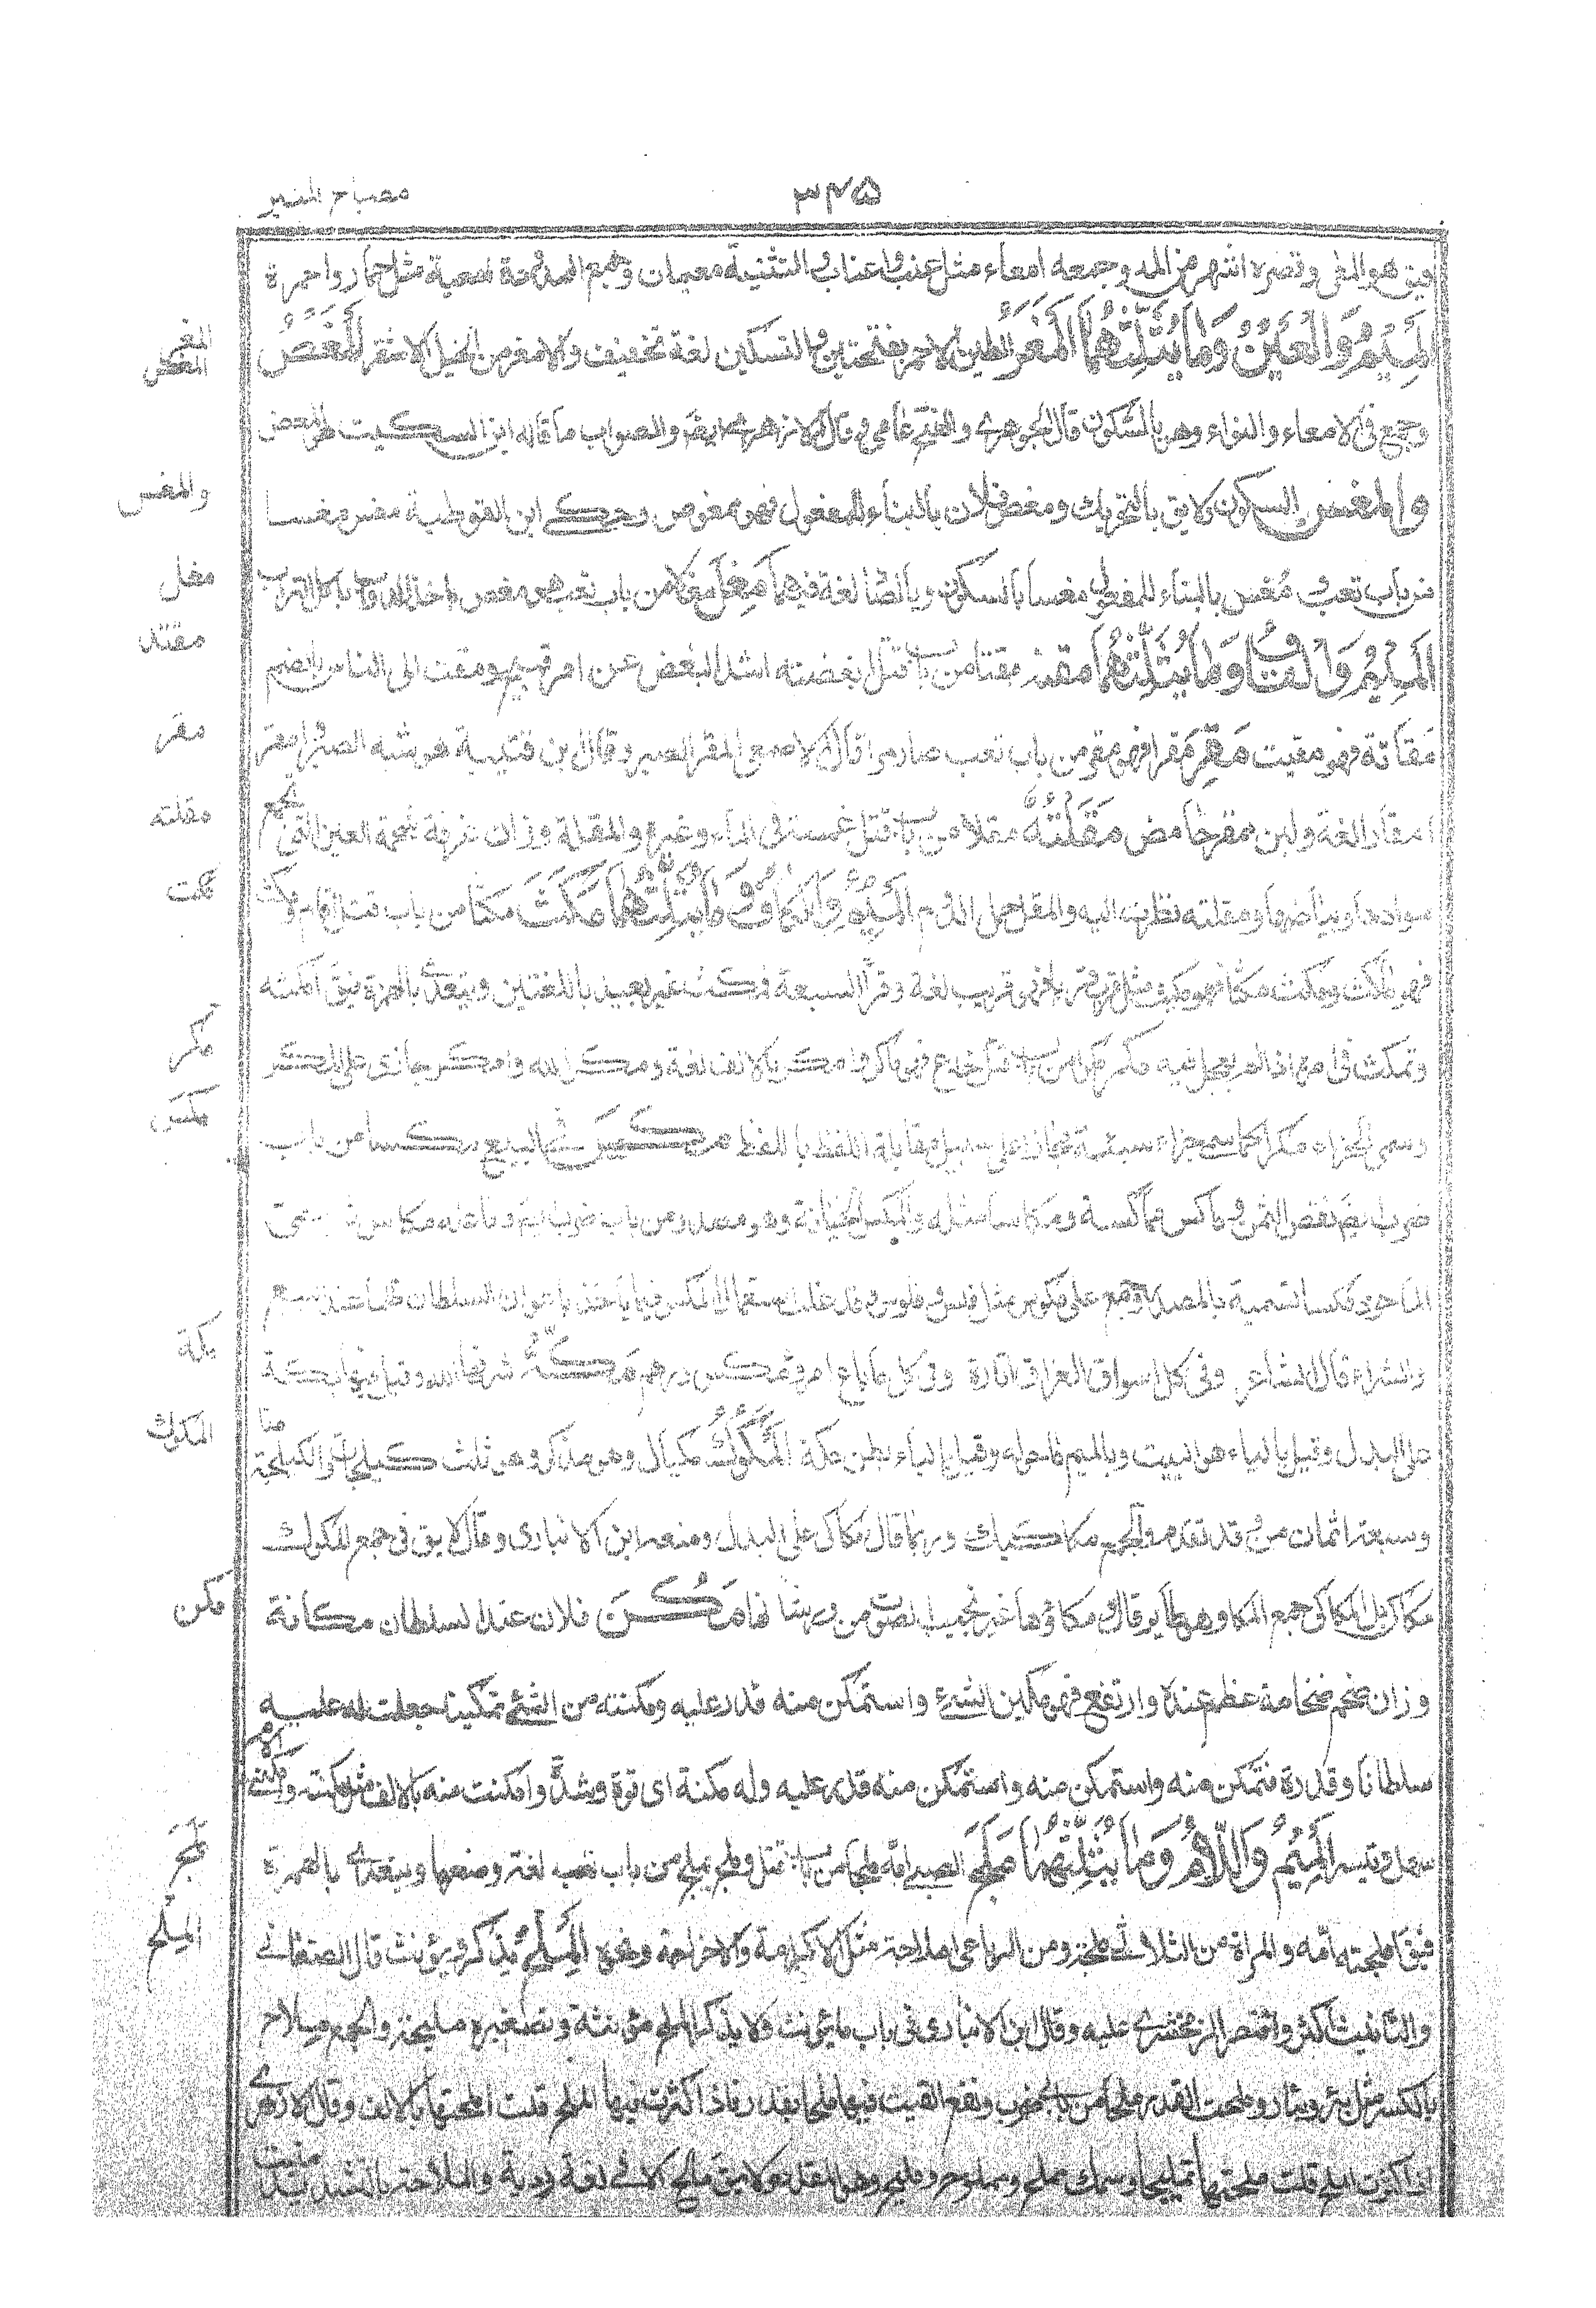 مصباح المنير
٣٢٥
فيق هو المعى وقصره اشهر من المد وجمعه امعاء مثل عنب واعناب و التثنية معيان وجمع الممدود امعية مثل حمار واحمرة
الميم والغين وما يثلثهما المغر الطين الاحمر بفتحتين والتسكين لغة تخفيف والامغر من الخيل الاشقر المغص
وجع فى الامعاء والتواء وهو بالسكون قال الجوهرى والفتح عامى وقال الازهرى ايضا والصواب ما قاله ابن السكيت المغص
والمغس بالسكون ولا يق بالتحريك ومغص فلان بالبناء للمفعول فهو ممغوص وحكى ابن القوطية مغس مغسا
من باب تعب ومغس بالبناء للمفعول مغسا بالسكون وبالصاد لغة فيهما مغل مغلا من باب تعب مغص واخذ الدواب باكل التراب
الميم والقاف وما يثلثهما مقته مقتا من باب قتل ابغضته اشد البغض عن امر قبيح ومقت الى الناس بالضم
مقاتة فهو مقيت مقر مقرا فهو مقر من باب تعب صار مرا قال الاصمعى المقر الصبر وقال بن قتيبة هو شبه الصبر وامقر
امقارا لغة ولبن ممقر حامض مقلته مقلا من باب قتل غمسته فى الماء وغيره والمقلة وزان غرفة شحمة العين التى تجمع
سوادها وبياضها ومقلته نظرت اليه والمقل حمل الدوم الميم والكاف وما يثلثهما مكث مكثا من باب قتل اقام وتلبث
فهو ماكث ومكث مكثا فهو مكيث مثل قرب قربا فهو قريب لغة وقرأ السبعة فمكث غير بعيد باللغتين ويتعدى بالهمزة فيق امكثه
وتمكث فى امره اذا لم يعجل فيه مكر مكرا من باب قتل خدع فهو ماكر وامكر بالالف لغة ومكر الله وامكر جازى على المكر
وسمى الجزاء مكرا كما سمى جزاء سيئة مجازا على سبيل مقابلة اللفظ باللفظ مكس فى البيع مكسا من باب
ضرب ايضا نقص الثمن و ماكس مماكسة ومكاسا مثله والمكس الجناية وهو مصدر من باب ضرب ايضا وفاعله مكاس ثم سمى
الماخوذ مكسا تسمية بالمصدر وجمع على مكوس مثل فلس و فلوس وقد غلب استعمال المكس فيما ياخذ باعوان السلطان ظلما عند البيع
والشراء قال الشاعر وفى كل اسواق العراق اتاوة وفى كل ما باع امرؤ مكس درهم مكة شرفها الله وقيل فيها بكة
على البدل وقيل بالباء هو البيت وبالميم ماحوله وقيل بالباء بطن مكة المكوك مكيال وهو مذكر وهو ثلث كيلجات والكيلجة منا
وسبعة اثمان من و قد تقدم والجمع مكاكيك وربما قال مكاكى على البدل ومنعه ابن الانبارى وقال لا يق فى جمع المكوك
مكاكى بل المكاكى جمع المكاء وهو طاير قال و مكاؤها خير نجيب الصوت من ريشا لها مكن فلان عند السلطان مكانة
وزان ضخم ضخامة عظم عنده وارتفع فهو مكين الشى واستمكن منه قدر عليه ومكنته من الشئ تمكينا جعلت له عليه
سلطانا وقدرة فتمكن منه واستمكن منه واستمكن منه قدر عليه وله مكنة اى قوة وشدة وامكنت منه بالالف مثل مكنته وامكننى الامر
سهل وتيسر الميم واللام وما يثلثهما ملج الصبى امه ملجا من باب قتل وملج يملج من باب تعب لغة رضعها ويتعدى بالهمزة
فيق املجته امه والمراة من الثلاثى ملجة ومن الرباعى املاجة مثل الاكرامة والاخراجة ونحوه الملح يذكر ويؤنث قال الصنعانى
والتانيث اكثر واقتصر الزمخشرى عليه وقال بن الانبارى فى باب ما يؤنث ولا يذكر الملح مؤنثة وتصغيره مليحة والجمع ملاح
بالكسر مثل بئر وبئار وملحت القدر ملحا من بابى ضرب ونفع القيت فيها ملحا بقدر فاذا اكثرت فيها الملح قلت املحتها بالالف وقال الازهرى
اذا اكثرت الملح قلت ملحتها تمليحا وسمك مملح ومملوح ومليح وهو المقدد ولا يق مالح الا فى لغة ردية والملاحة بالتشديد منبت
المغر
المغص
والمغس
مغل
مقته
مقر
مقلته
مكث
مكر
مكس
مكة
المكوك
مكن
ملج
الملح